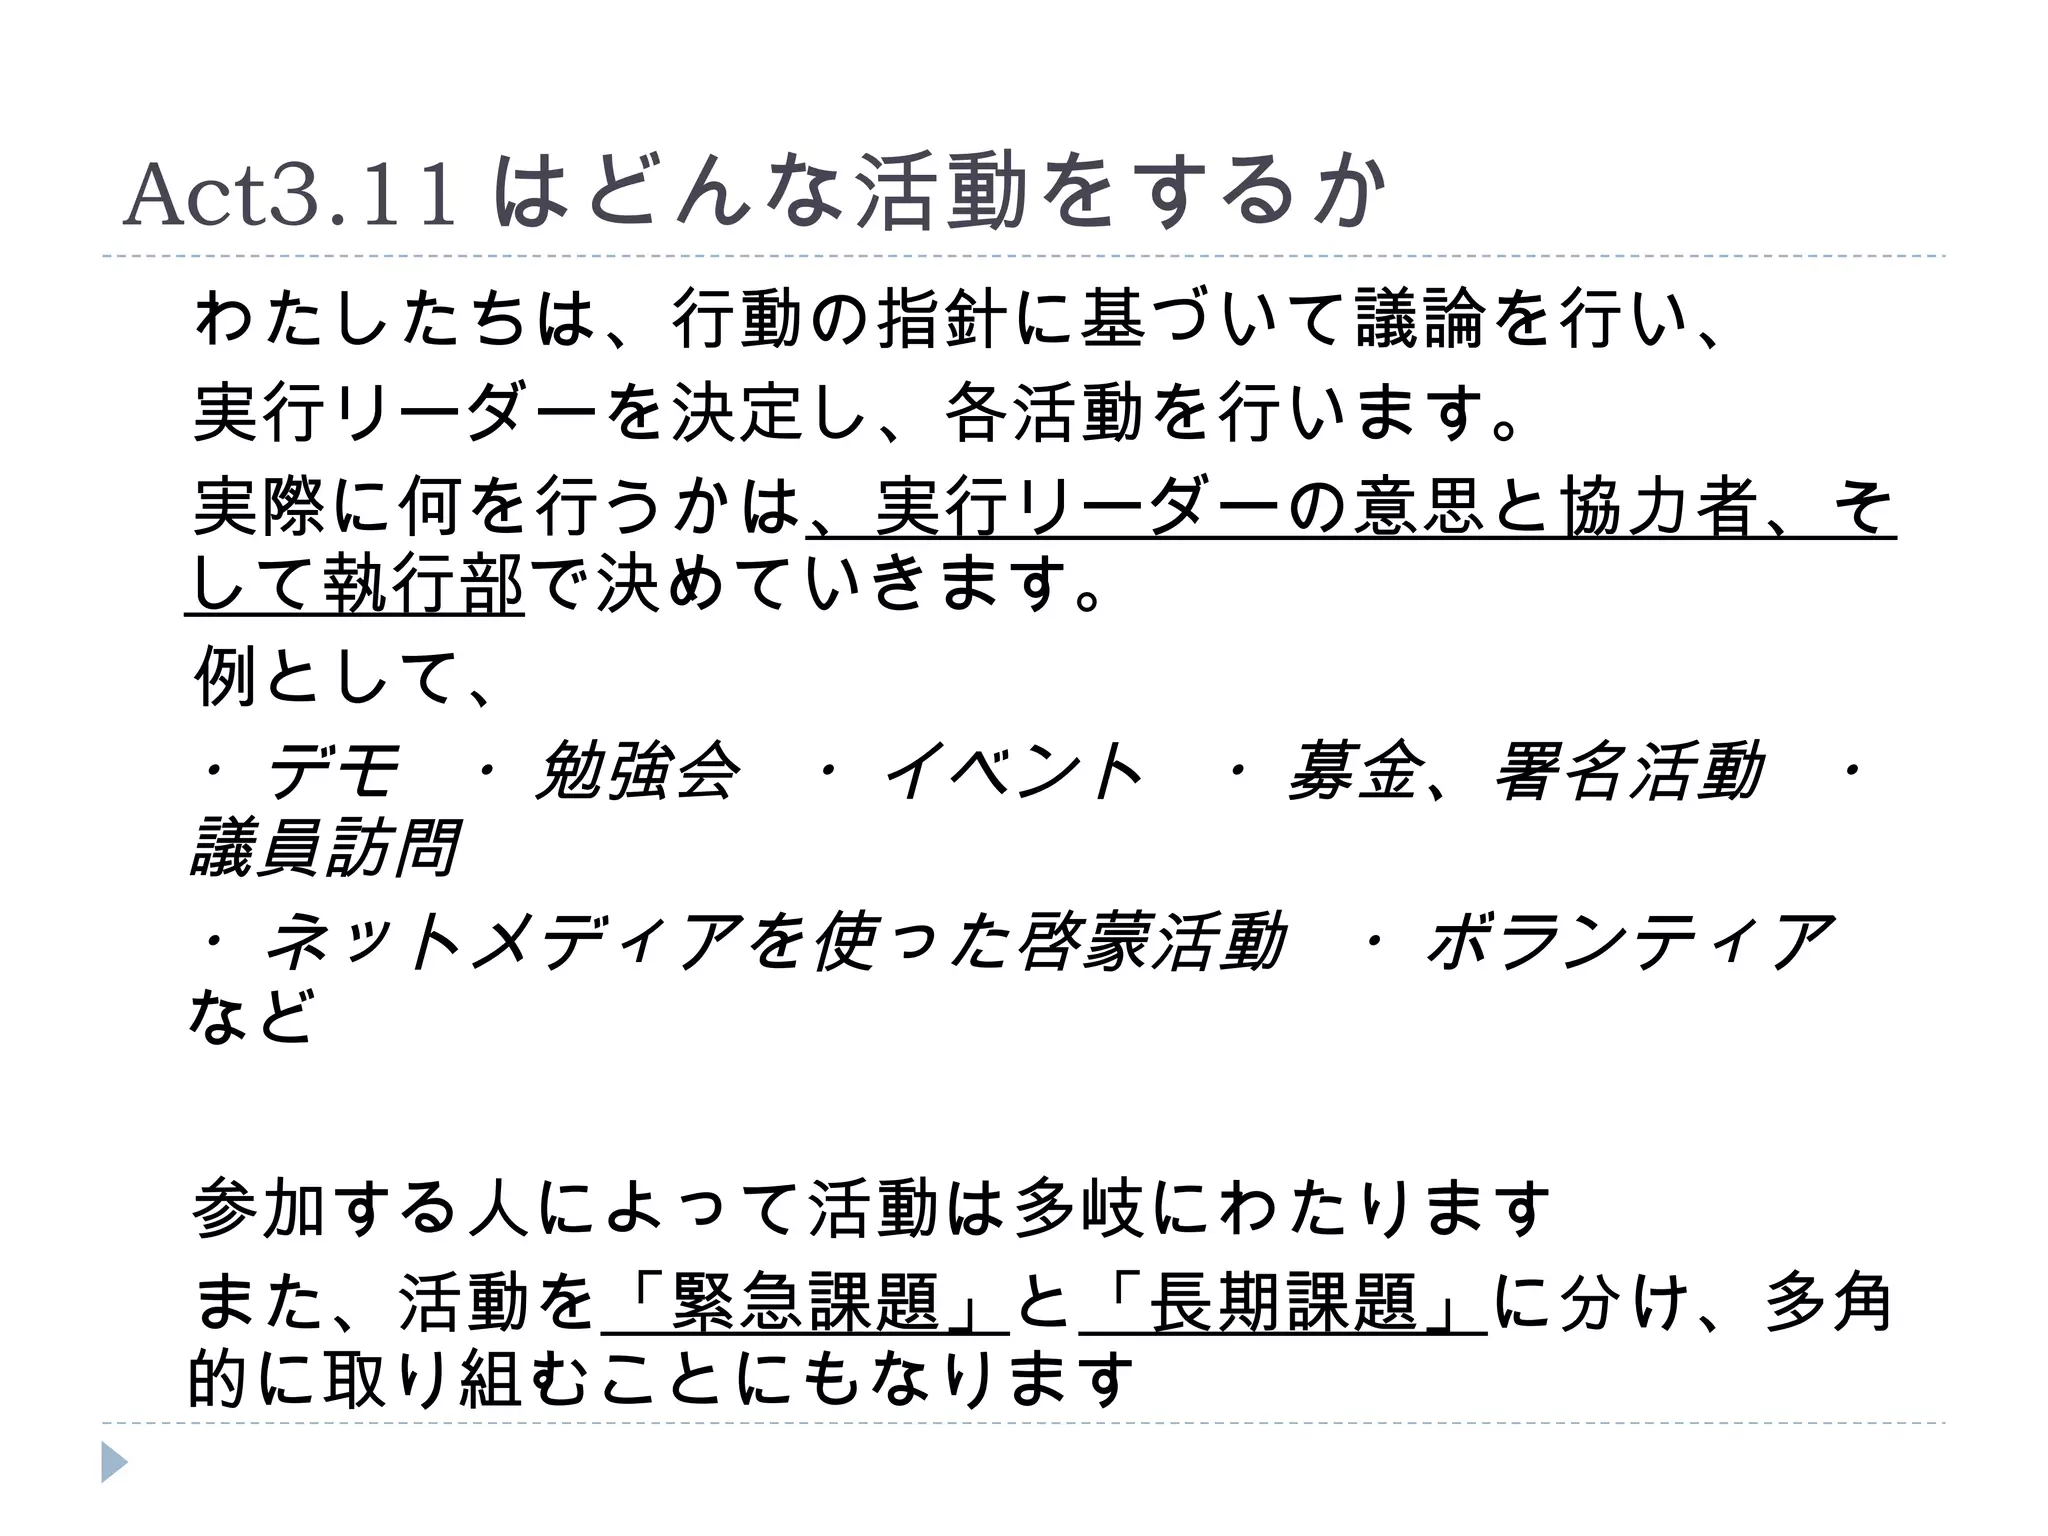 Act3.11はどんな活動をするか
わたしたちは、行動の指針に基づいて議論を行い、
実行リーダーを決定し、各活動を行います。
実際に何を行うかは、実行リーダーの意思と協力者、そ
して執行部で決めていきます。
例として、
・デモ　・勉強会　・イベント　・募金、署名活動　・
議員訪問
・ネットメディアを使った啓蒙活動　・ボランティア
など
参加する人によって活動は多岐にわたります
また、活動を「緊急課題」と「長期課題」に分け、多角
的に取り組むことにもなります